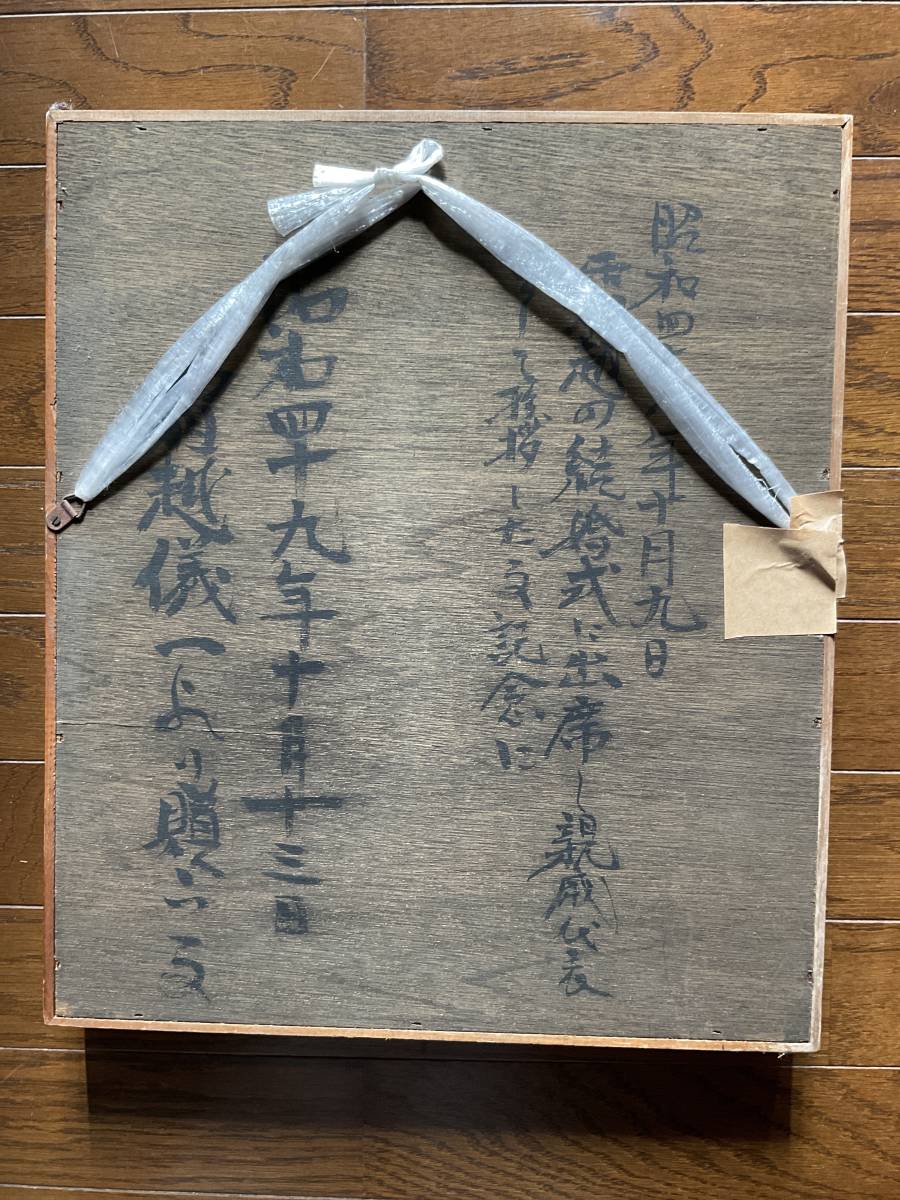 昭和四 年十月九日
越の結婚式に出席し親戚代表
して挨拶した 記念に
昭和四十九年十月十三日
越儀一より贈